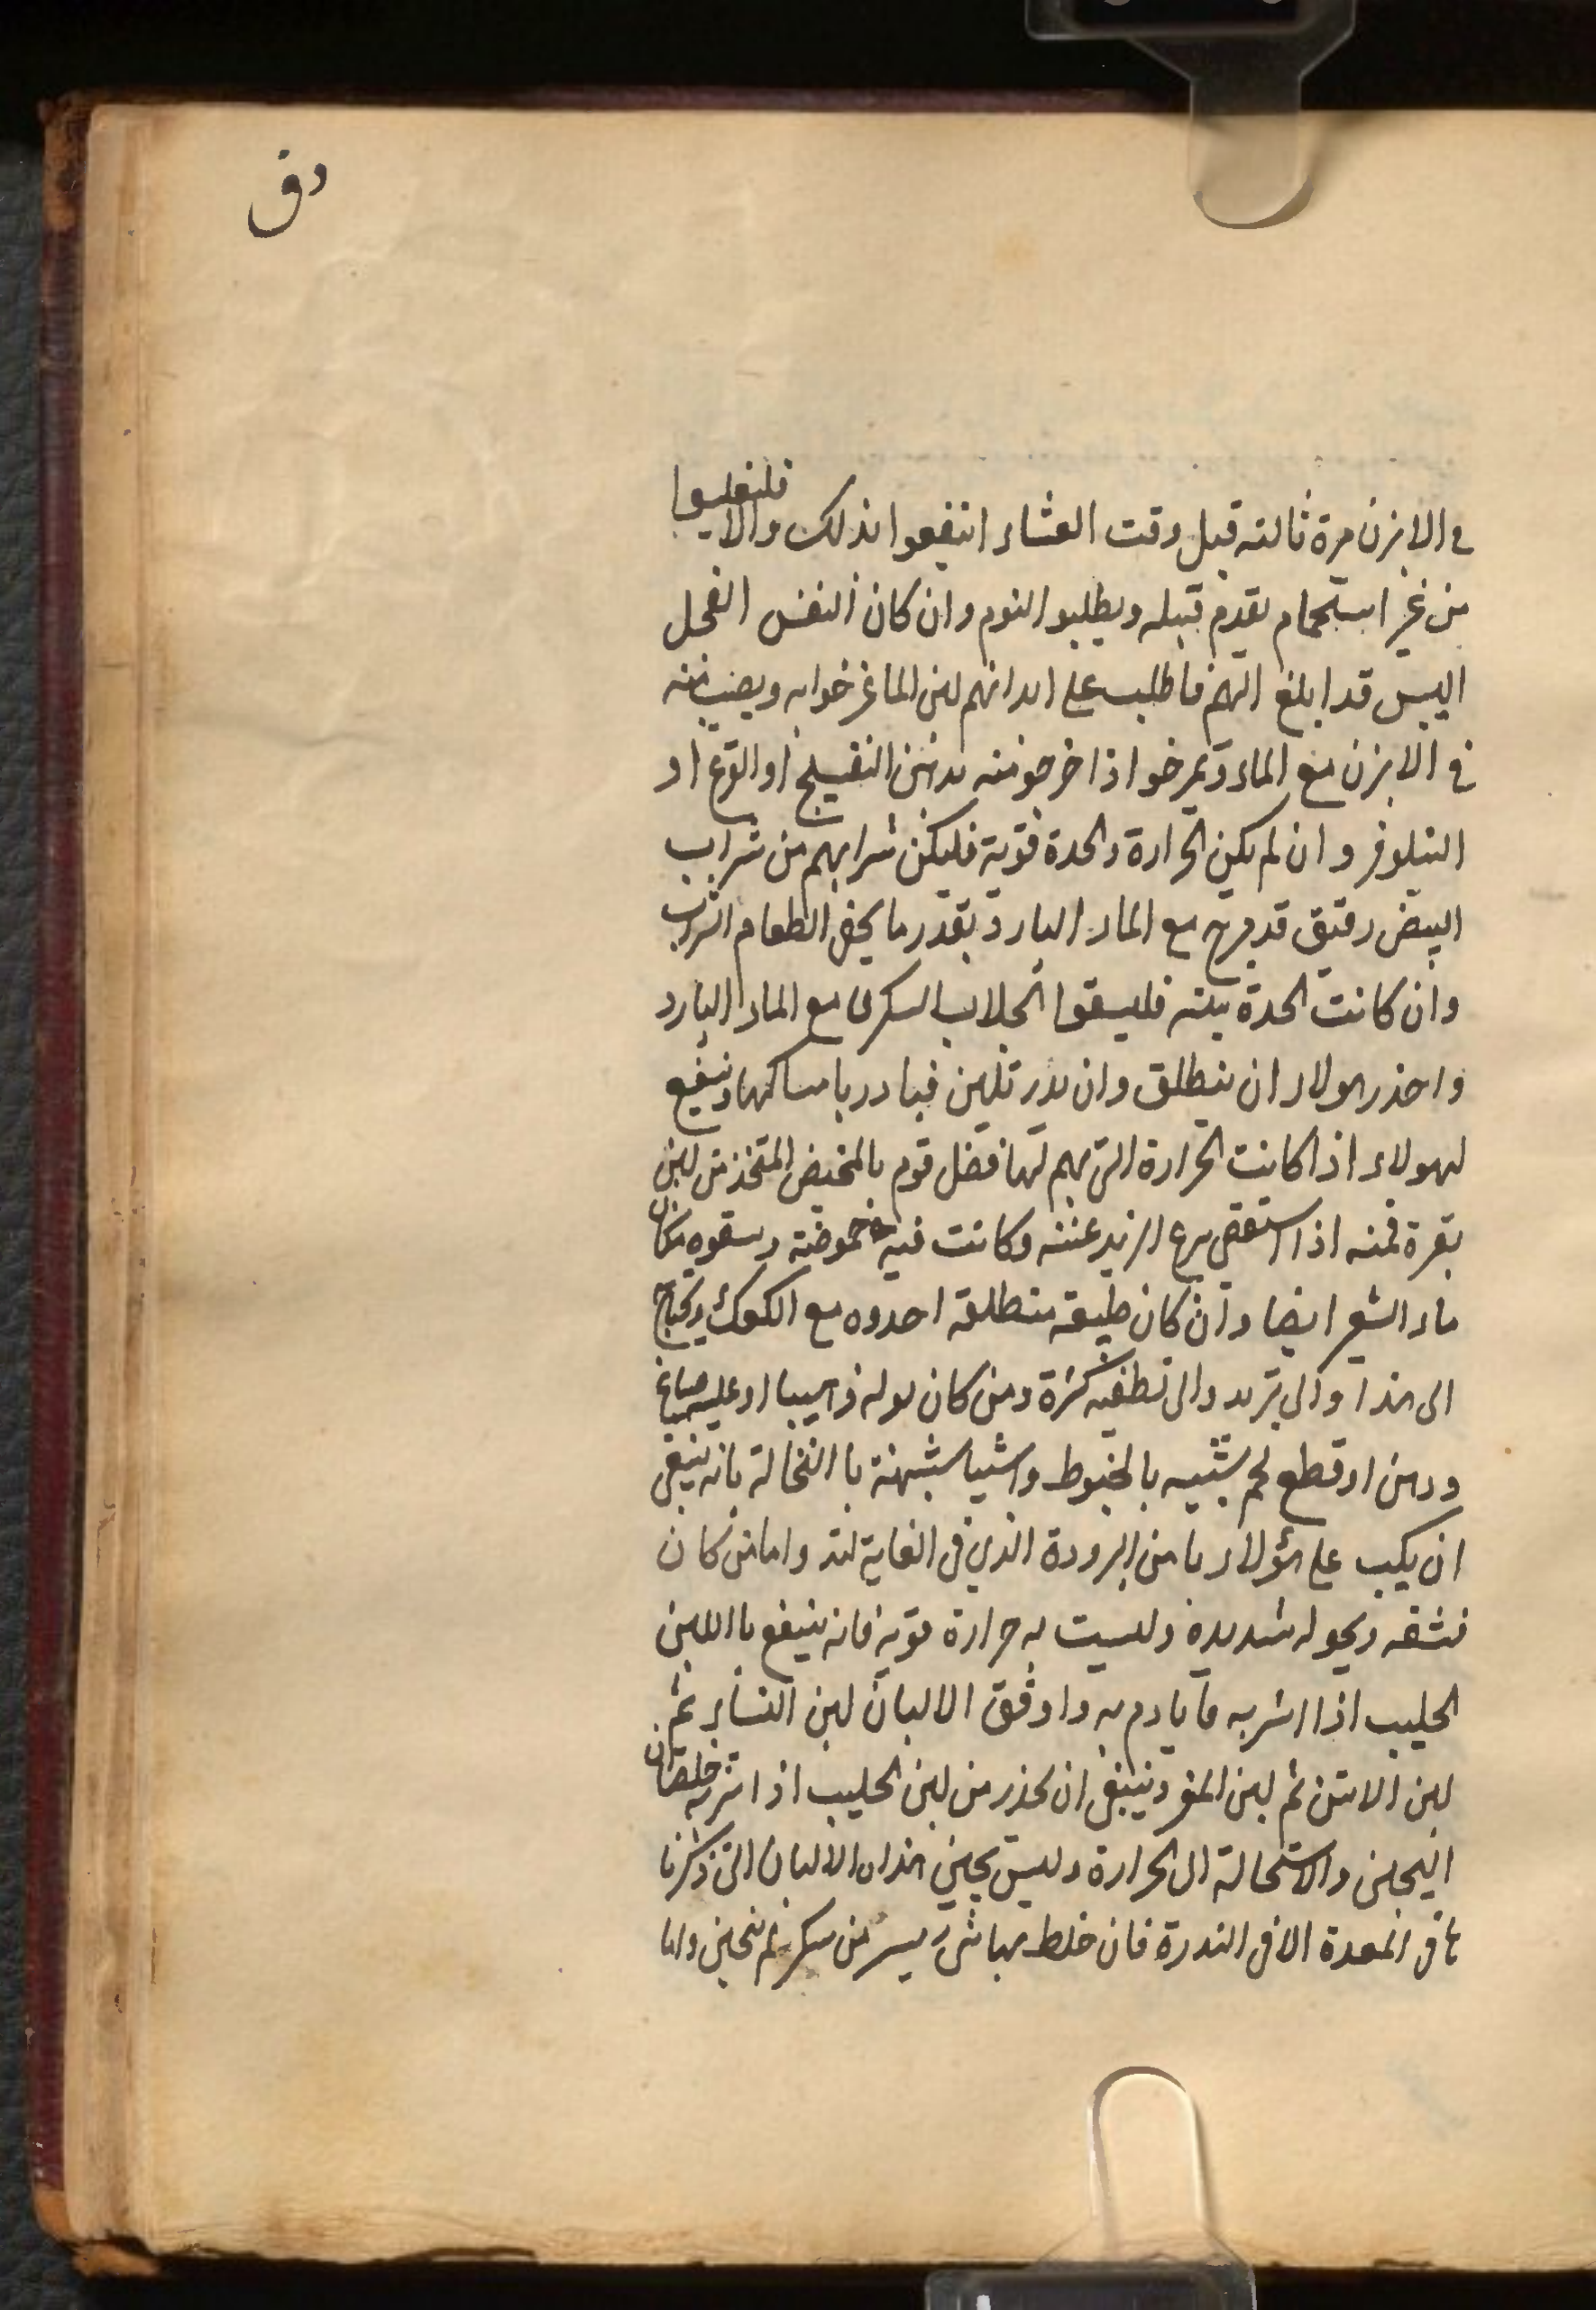 دق
في الابزن مرة ثالثه قبل وقت العشاء انتفعوا بذلك والا
من غير استحمام يقدم قبله ويطلبوا النوم وان كان النفس الفحل
اليبس قد ابلغ اليهم فاطلب على ابدانهم لبن الماعز خوابه ويصب منه
في الابزن مع الماء ويمرخوا اذا خرجو منه بدهن النفيلج او القرع او
النيلوفر وان لم يكن الحرارة والحدة قوية فليكن شرابهم من شراب
ابيض رقيق قد مزج مع الماء البارد بقدر ما الطعام الشراب
وان كانت الحدة بينه فليسقوا الجلاب السكرى مع الماء البارد
واحذر هولاء ان ينطلق وان بدر تليين فبادر بامساكها وينتفع
لهولاء اذا كانت الحرارة التي بهم لها فضل قوم بالمخيض المتخذ من لبن
بقرة فمنه اذا استقصى نزع الزبد عنه وكانت فيه حموضة ويسقوه مكان
ماء الشعير ايضا وان كان طبيعة منطلقة احدوه مع الكعك ويحتاج
الى هذا والى تبريد والى تطفيه كثرة ومن كان بوله
ودهن او قطع لحم شبيه بالخيوط واشيا شبيهة با النخالة بانه ينبغي
ان يكب على هؤلاء ما من البرودة الذي في الغاية واما من كان
نشفه ونحوله شديدة وليست به حرارة قوية فانه ينتفع با اللبن
الحليب اذا اشربه ما يادم به واوفق الالبان لبن النساء ثم
لبن الاتن ثم لبن المعز وينبغي ان يحذر من لبن الحليب اذا شربه خلصتان
التجبن والاستحالة الى الحرارة وليس يجبن هذاه الالبان التي ذكرنا
ها في المعدة الا في الندرة فان خلط بها شي يسير من سكر لم تتجبن واما